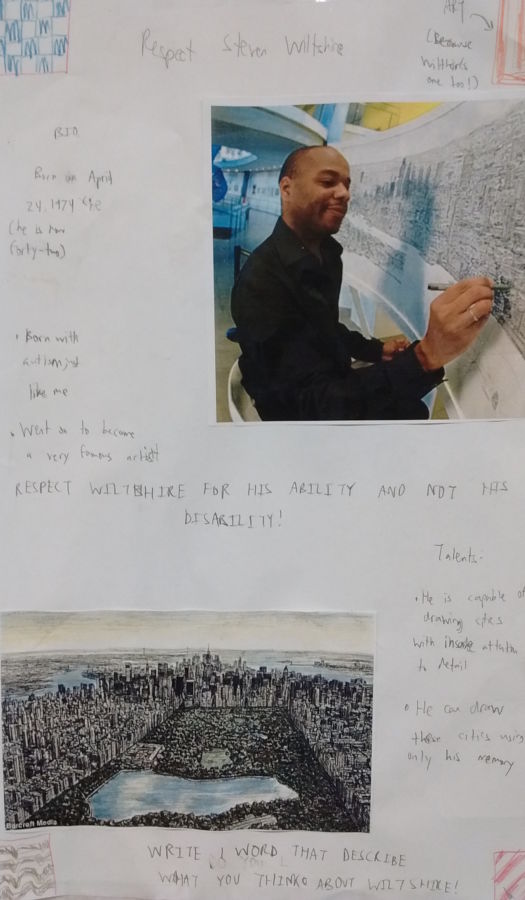 Respect Steven Wiltshire
ART
(Because
Wiltshire's
one too!)
BIO
Born on April
24, 1974
(he is now
forty-two)
• Born with
autism just
like me
• Went on to become
a very famous artist
RESPECT WILTSHIRE FOR HIS ABILITY AND NOT HIS
DISABILITY!
Talents:
• He is capable of
drawing cities
with insane attention
to detail
• He can draw
these cities using
only his memory
Barcroft Media
WRITE 1 WORD THAT DESCRIBE
WHAT YOU THINK ABOUT WILTSHIRE!